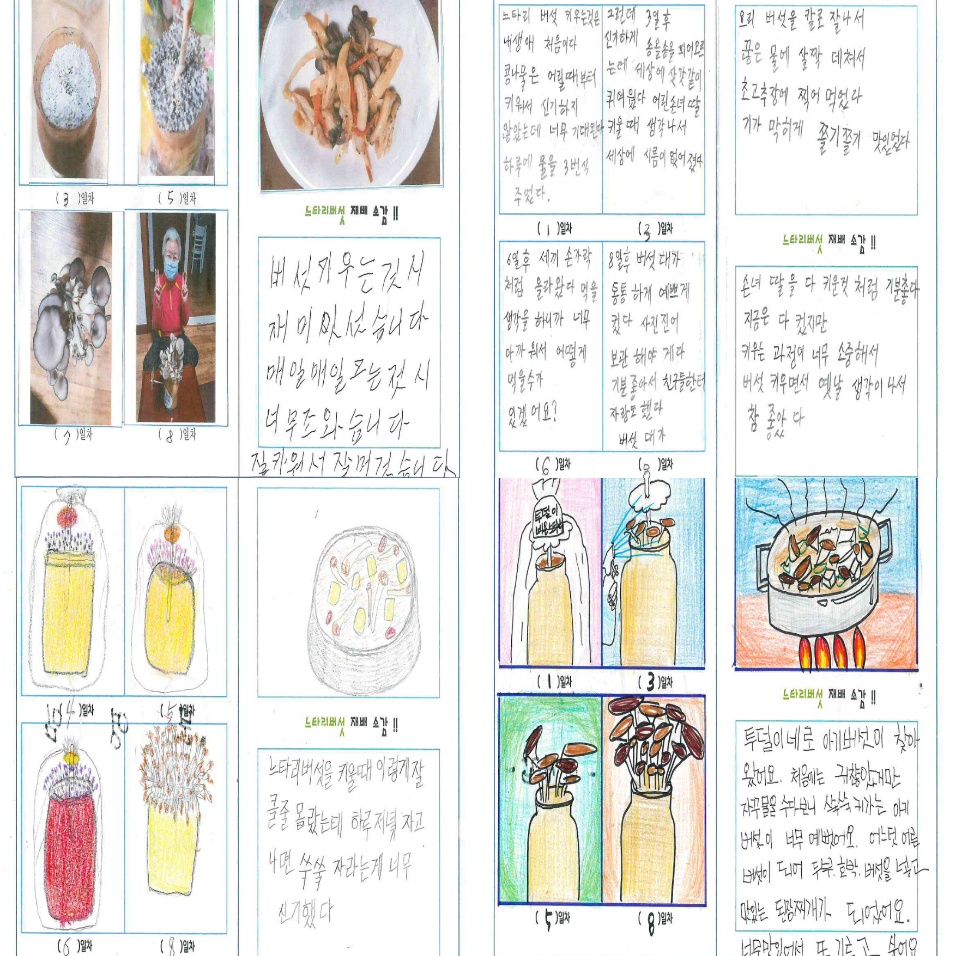 ( 3 )일차
( 5 )일차
( 7 )일차
( 8 )일차
느타리버섯 재배 소감 !!
버섯키우는것시
재미잇섯습니다
매일매일 드는 것 시
너무조와습니다
잘키워서잘머건습니다
느타리 버섯 키우는것은
내생애 처음이다
콩나물은 어릴때부터
키워서 신기하지
않았는데 너무 기대된다
하루에 물을 3번씩
주었다.
( 1 )일차
그런데 3일후
신기하게 송올송올 피어오르
는데 세상에 삿갓같이
귀여웠다 어린손녀딸
키울때 생각나서
세상에 시름이 없어졌다
( 3 )일차
6일후 세끼 손가락
처럼 올라왔다 먹을
생각을 하니까 너무
아까워서 어떻게
먹을수가
있겠어요?
( 6 )일차
8일후 버섯대가
통통하게 예쁘게
컸다 사진찍어
보관해야 게다
기분좋아서 친구들한터
자랑도했다
버섯대가
( 8 )일차
요리 버섯을 칼로 잘나서
끓은 물에 살짝 데쳐서
초고추장에 찍어먹었다
기가 막히게 쫄기쫄기 맛있었다
느타리버섯 재배 소감 !!
손녀 딸을 다 키운것 처럼 기분좋다
지금은 다 컸지만
키우는 과정이 너무 소중해서
버섯 키우면서 옛날 생각이나서
참 좋았다
( 4 )일차
( 5 )일차
( 6 )일차
( 8 )일차
느타리버섯 재배 소감 !!
느타리버섯을 키울때 이렇게잘
클줄 몰랐는데 하로저녁 자고
나면 쑥쑥 자라는게 너무
신기했다
투덜이
( 1 )일차
( 3 )일차
( 5 )일차
( 8 )일차
느타리버섯 재배 소감 !!
투덜이네로 아기버섯이 찾아
왔어요. 처음에는 귀찮았지만
자꾸물을 주다보니 쑥쑥 커가는 아기
버섯이 너무 예뻤어요. 어느덧 어른
버섯이 되어 두부, 호박, 버섯을 넣고
맛있는 된장찌개가 되었어요.
너무맛있어서 또 기르고 싶어요